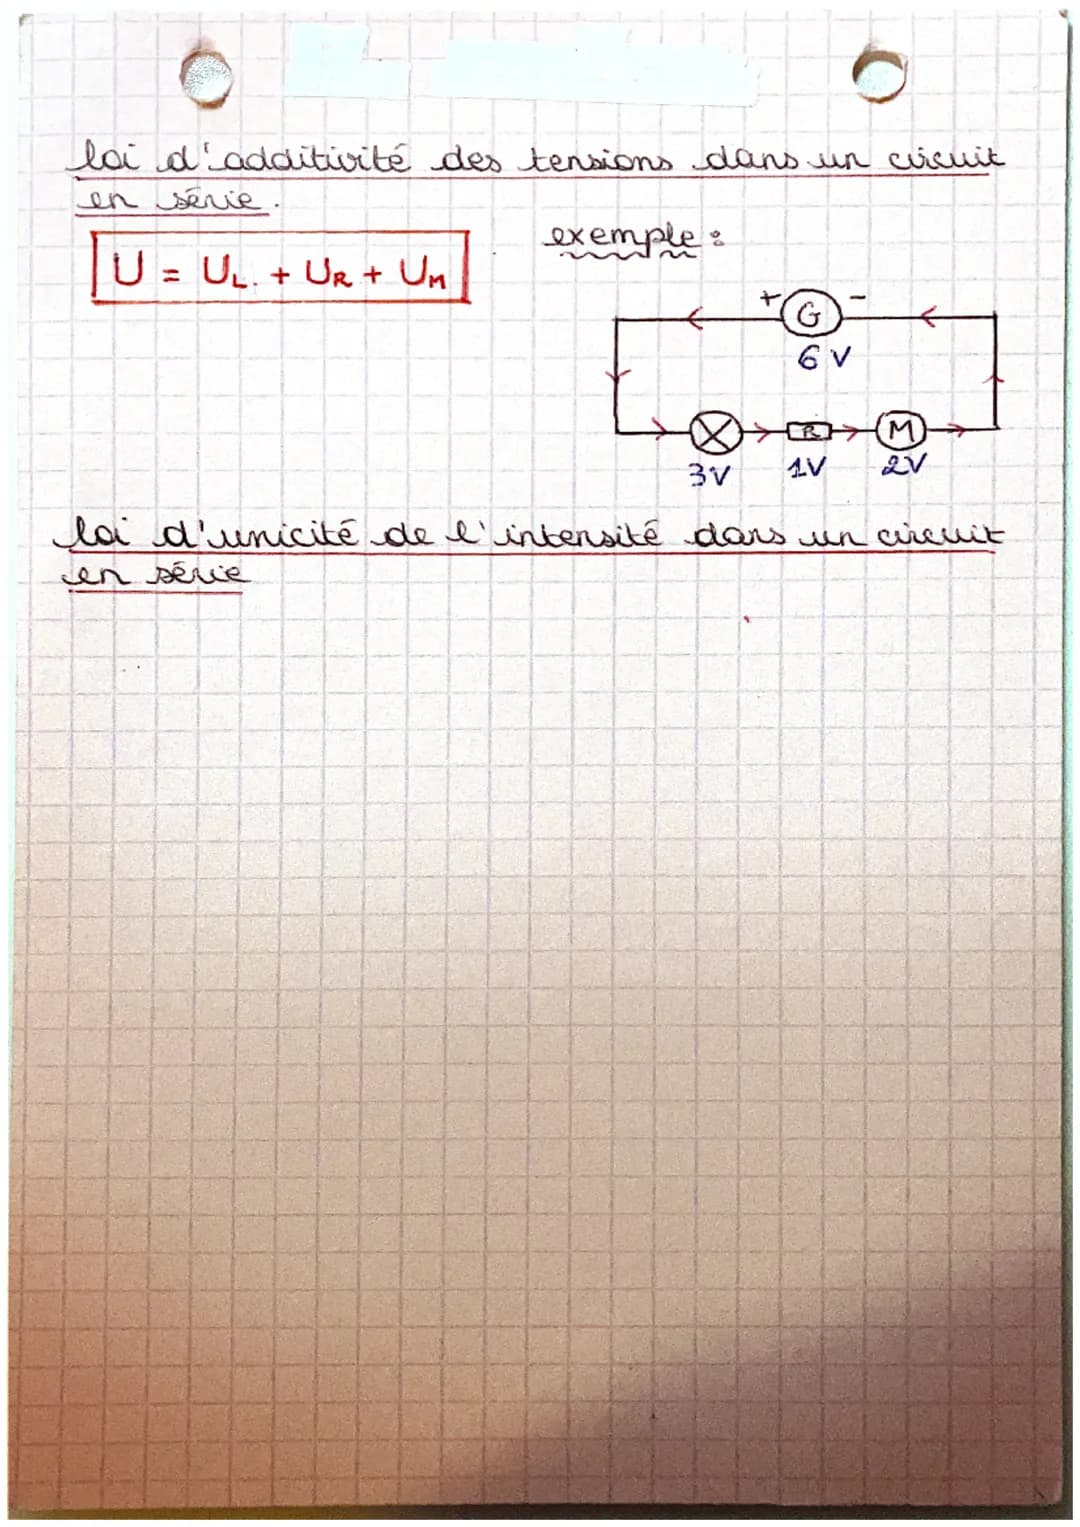 loi d'additivité des tensions dans un circuit
en série.
U = UL. + UR + UM
exemple :
+ G -
6 V
R M
3V 1V 2V
loi d'unicité de l'intensité dans un circuit
en série